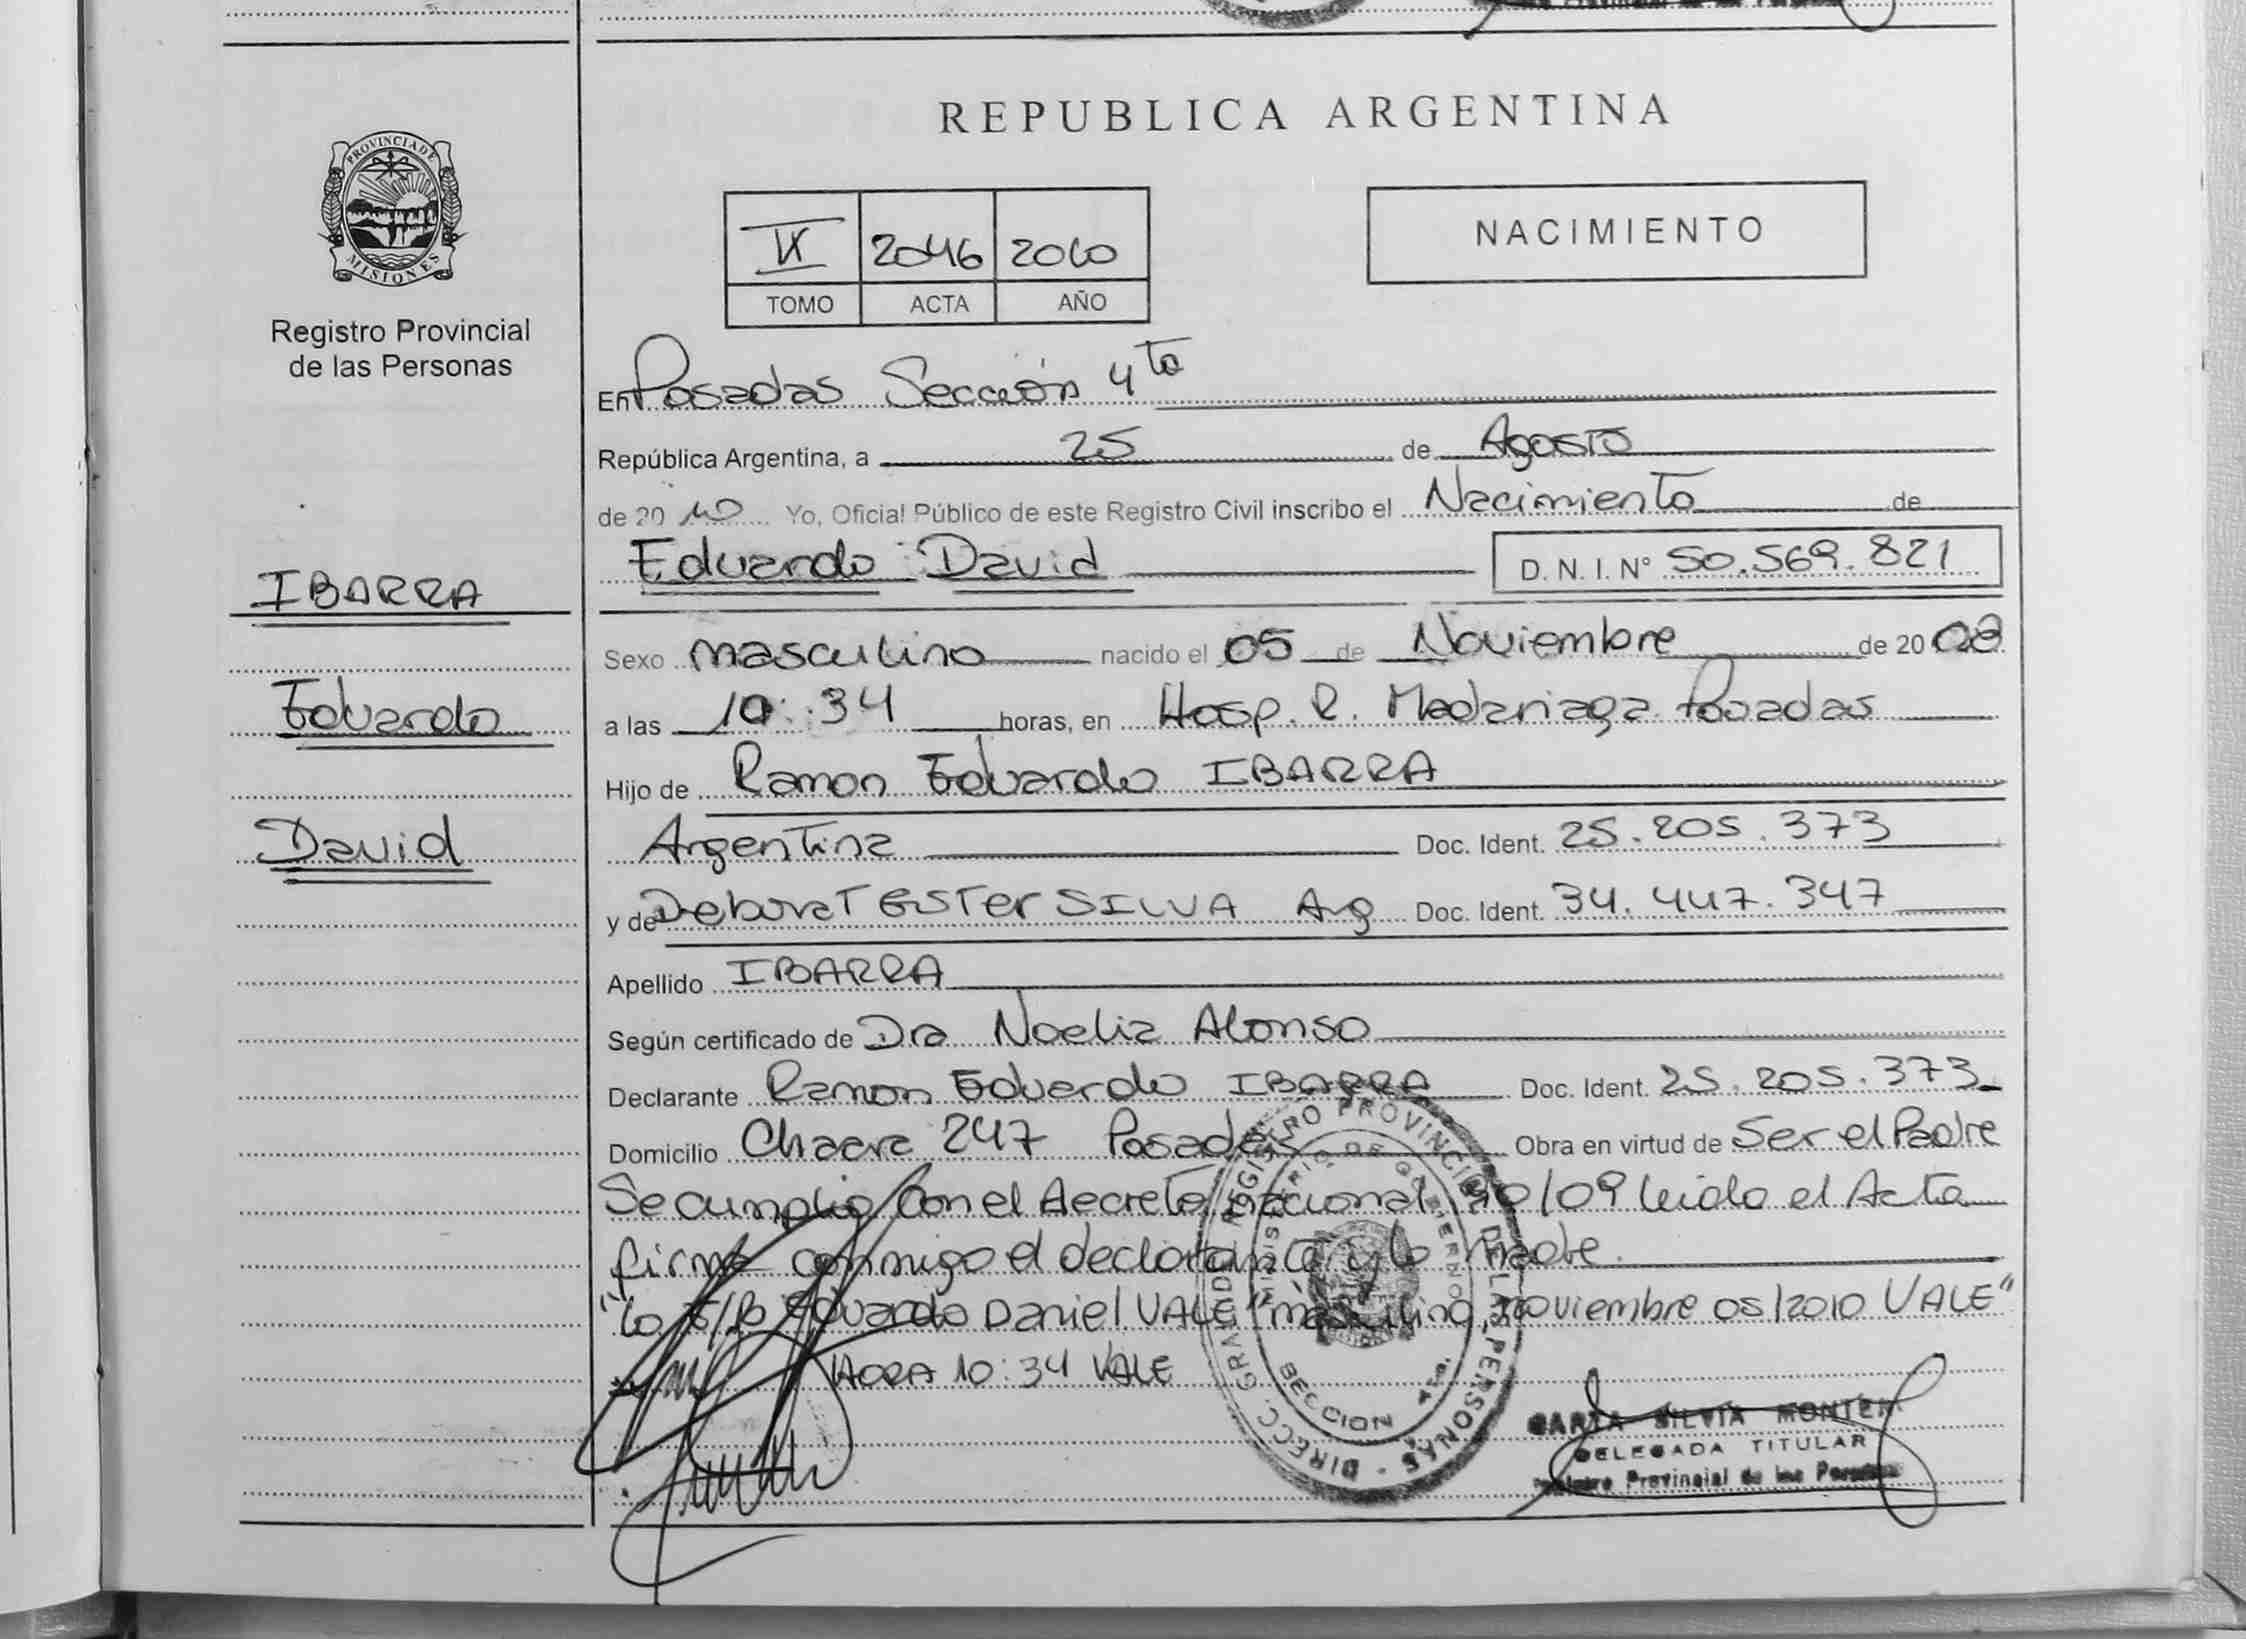 REPUBLICA ARGENTINA
PROVINCIA DE
MISIONES
Registro Provincial
de las Personas
NACIMIENTO
2046 2010
TOMO ACTA AÑO
En Posadas Sección 4ta
República Argentina, a 25 de Agosto
de 2010 Yo, Oficial Público de este Registro Civil inscribo el Nacimiento de
Eduardo David D. N. I. N° 50.569.821
IBARRA
Eduardo
David
Sexo masculino nacido el 05 de Noviembre de 2008
a las 10:34 horas, en Hosp. R. Madariaga Posadas
Hijo de Ramon Eduardo IBARRA
Argentina Doc. Ident. 25.205.373
y de Ester SILVA Arg Doc. Ident. 34.447.347
Apellido IBARRA
Según certificado de Dra Noelia Alonso
Declarante Ramon Eduardo IBARRA Doc. Ident. 25.205.373
Domicilio Chacra 247 Posadas Obra en virtud de Ser el Padre
Se cumplio con el decreto nacional 90/09 leida el Acta
firma conmigo el declarante y la madre.
"lo S/B Eduardo Daniel VALE" "masculino, noviembre 05/2010 VALE"
HORA 10:34 VALE
DIRECC. GRAL. D REGISTRO PROVINCIAL DE LAS PERSONAS
MINISTERIO DE GOBIERNO
SECCION 4ta.
SILVIA MONTE
DELEGADA TITULAR
Registro Provincial de las Personas